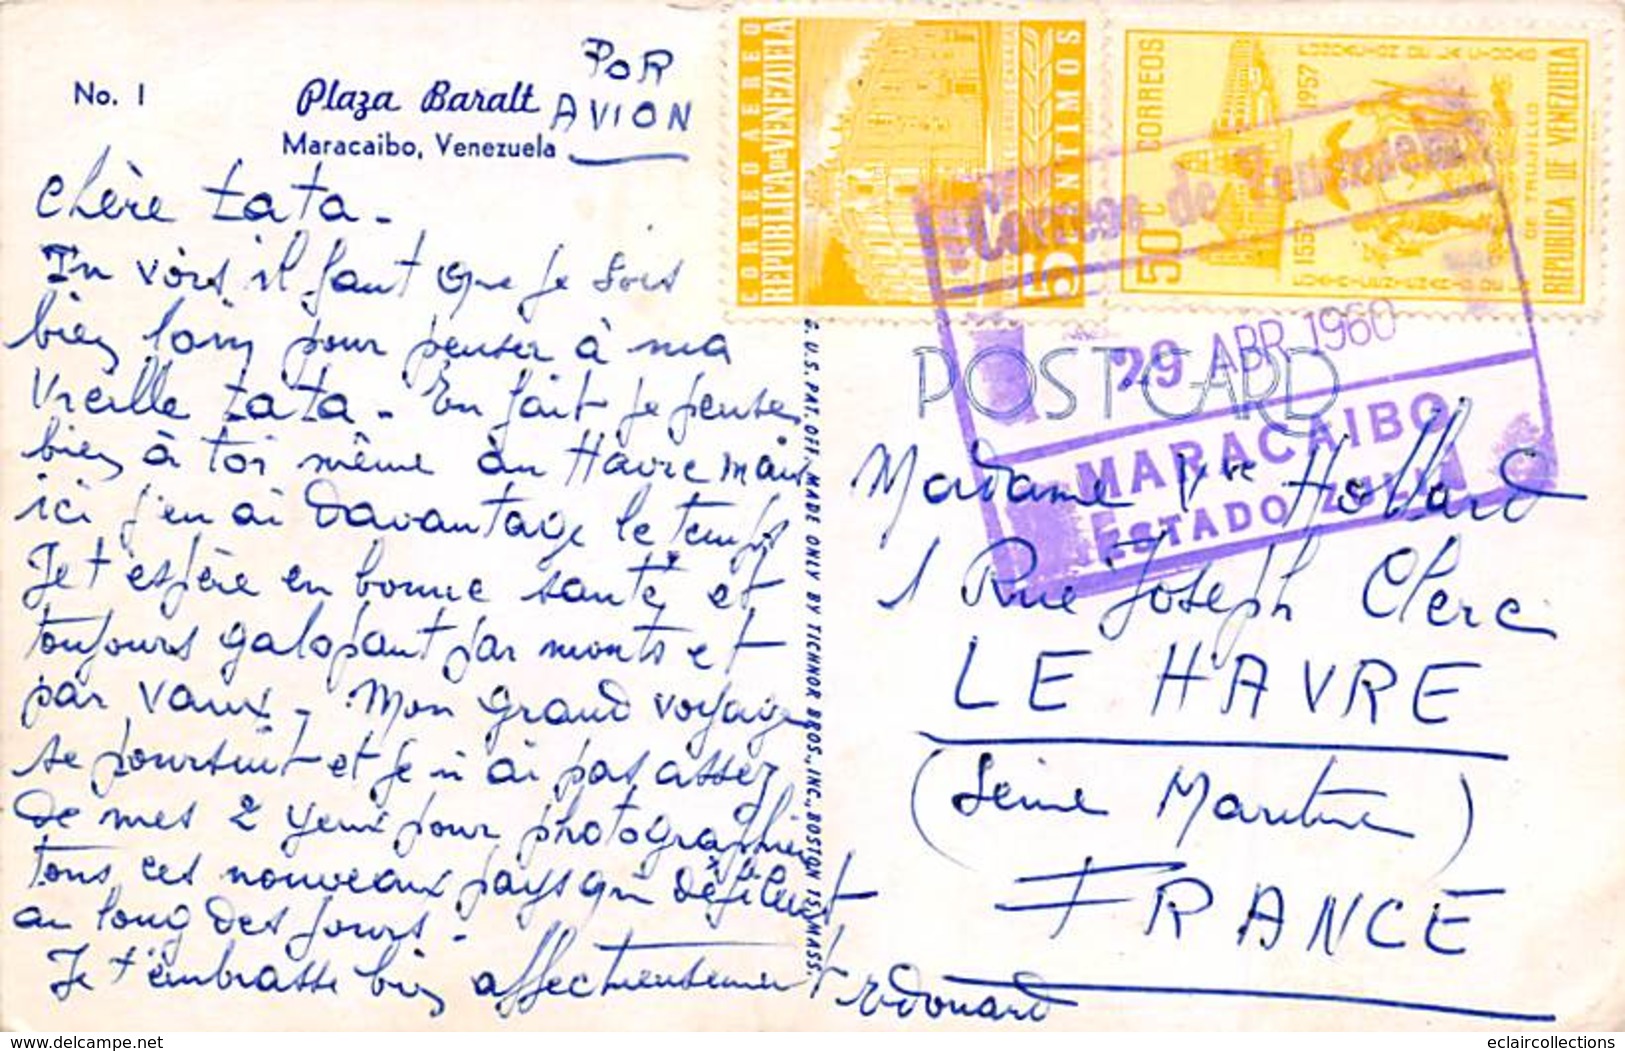 No. 1
Plaza Baralt
Maracaibo, Venezuela
POR
AVION
Chère tata -
Tu vois il faut que je sois
bien loin pour penser à ma
vieille tata - En fait je pense
bien à toi même au Havre mais
ici j'en ai davantage le temps
Je t'espère en bonne santé, et
toujours galopant par monts et
par vaux - Mon grand voyage
se poursuit et je n'ai pas assez
de mes 2 yeux pour photographier
tous ces nouveaux pays qui défilent
au long des jours -
Je t'embrasse bien affectueusement
Edouard
G. U.S. PAT. OFF. MADE ONLY BY TICHNOR BROS., INC., BOSTON 15, MASS.
CORREO AEREO
REPUBLICA DE VENEZUELA
5 CENTIMOS
CORREOS
50c
1557 1957
DE TRUJILLO
REPUBLICA DE VENEZUELA
Correos de Venezuela
29 ABR 1960
MARACAIBO
ESTADO ZULIA
POST CARD
Madame Vve Hollard
1 Rue Joseph Clerc
LE HAVRE
(Seine Maritime)
FRANCE
eclaircollections